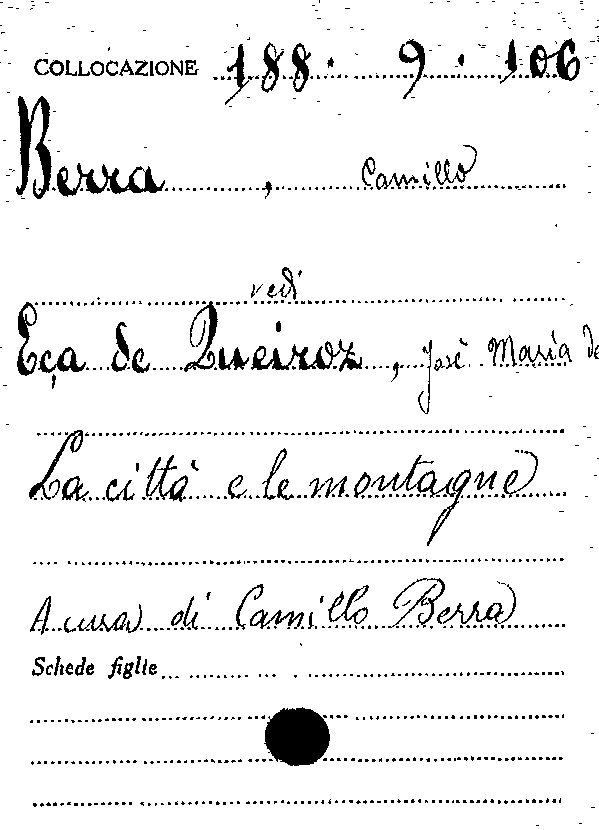 COLLOCAZIONE 188. 9. 106
Berra, Camillo
vedi
Eça de Queiroz, José Maria de
La città e le montagne
A cura di Camillo Berra
Schede figlie